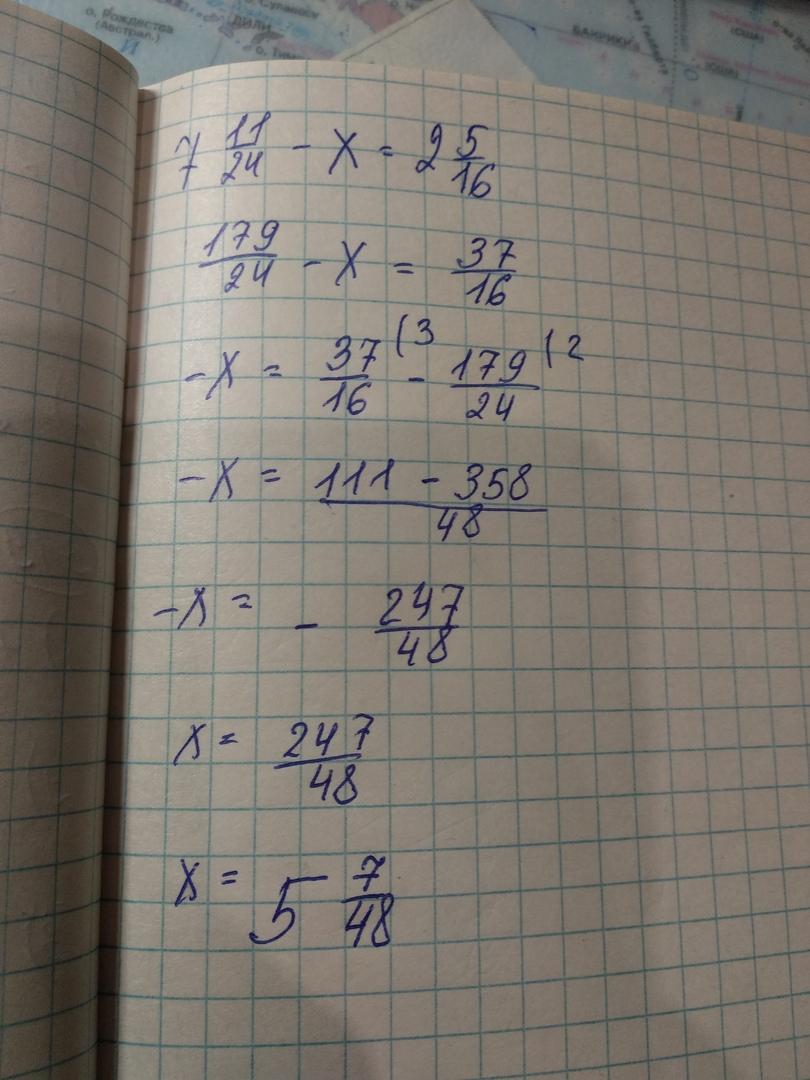 о. Рождества
(Австрал.)
ДИЛИ
7 11/24 - x = 2 5/16
179/24 - x = 37/16
-x = 37/16 (3 - 179/24 (2
-x = 111 - 358/48
-x = - 247/48
x = 247/48
x = 5 7/48